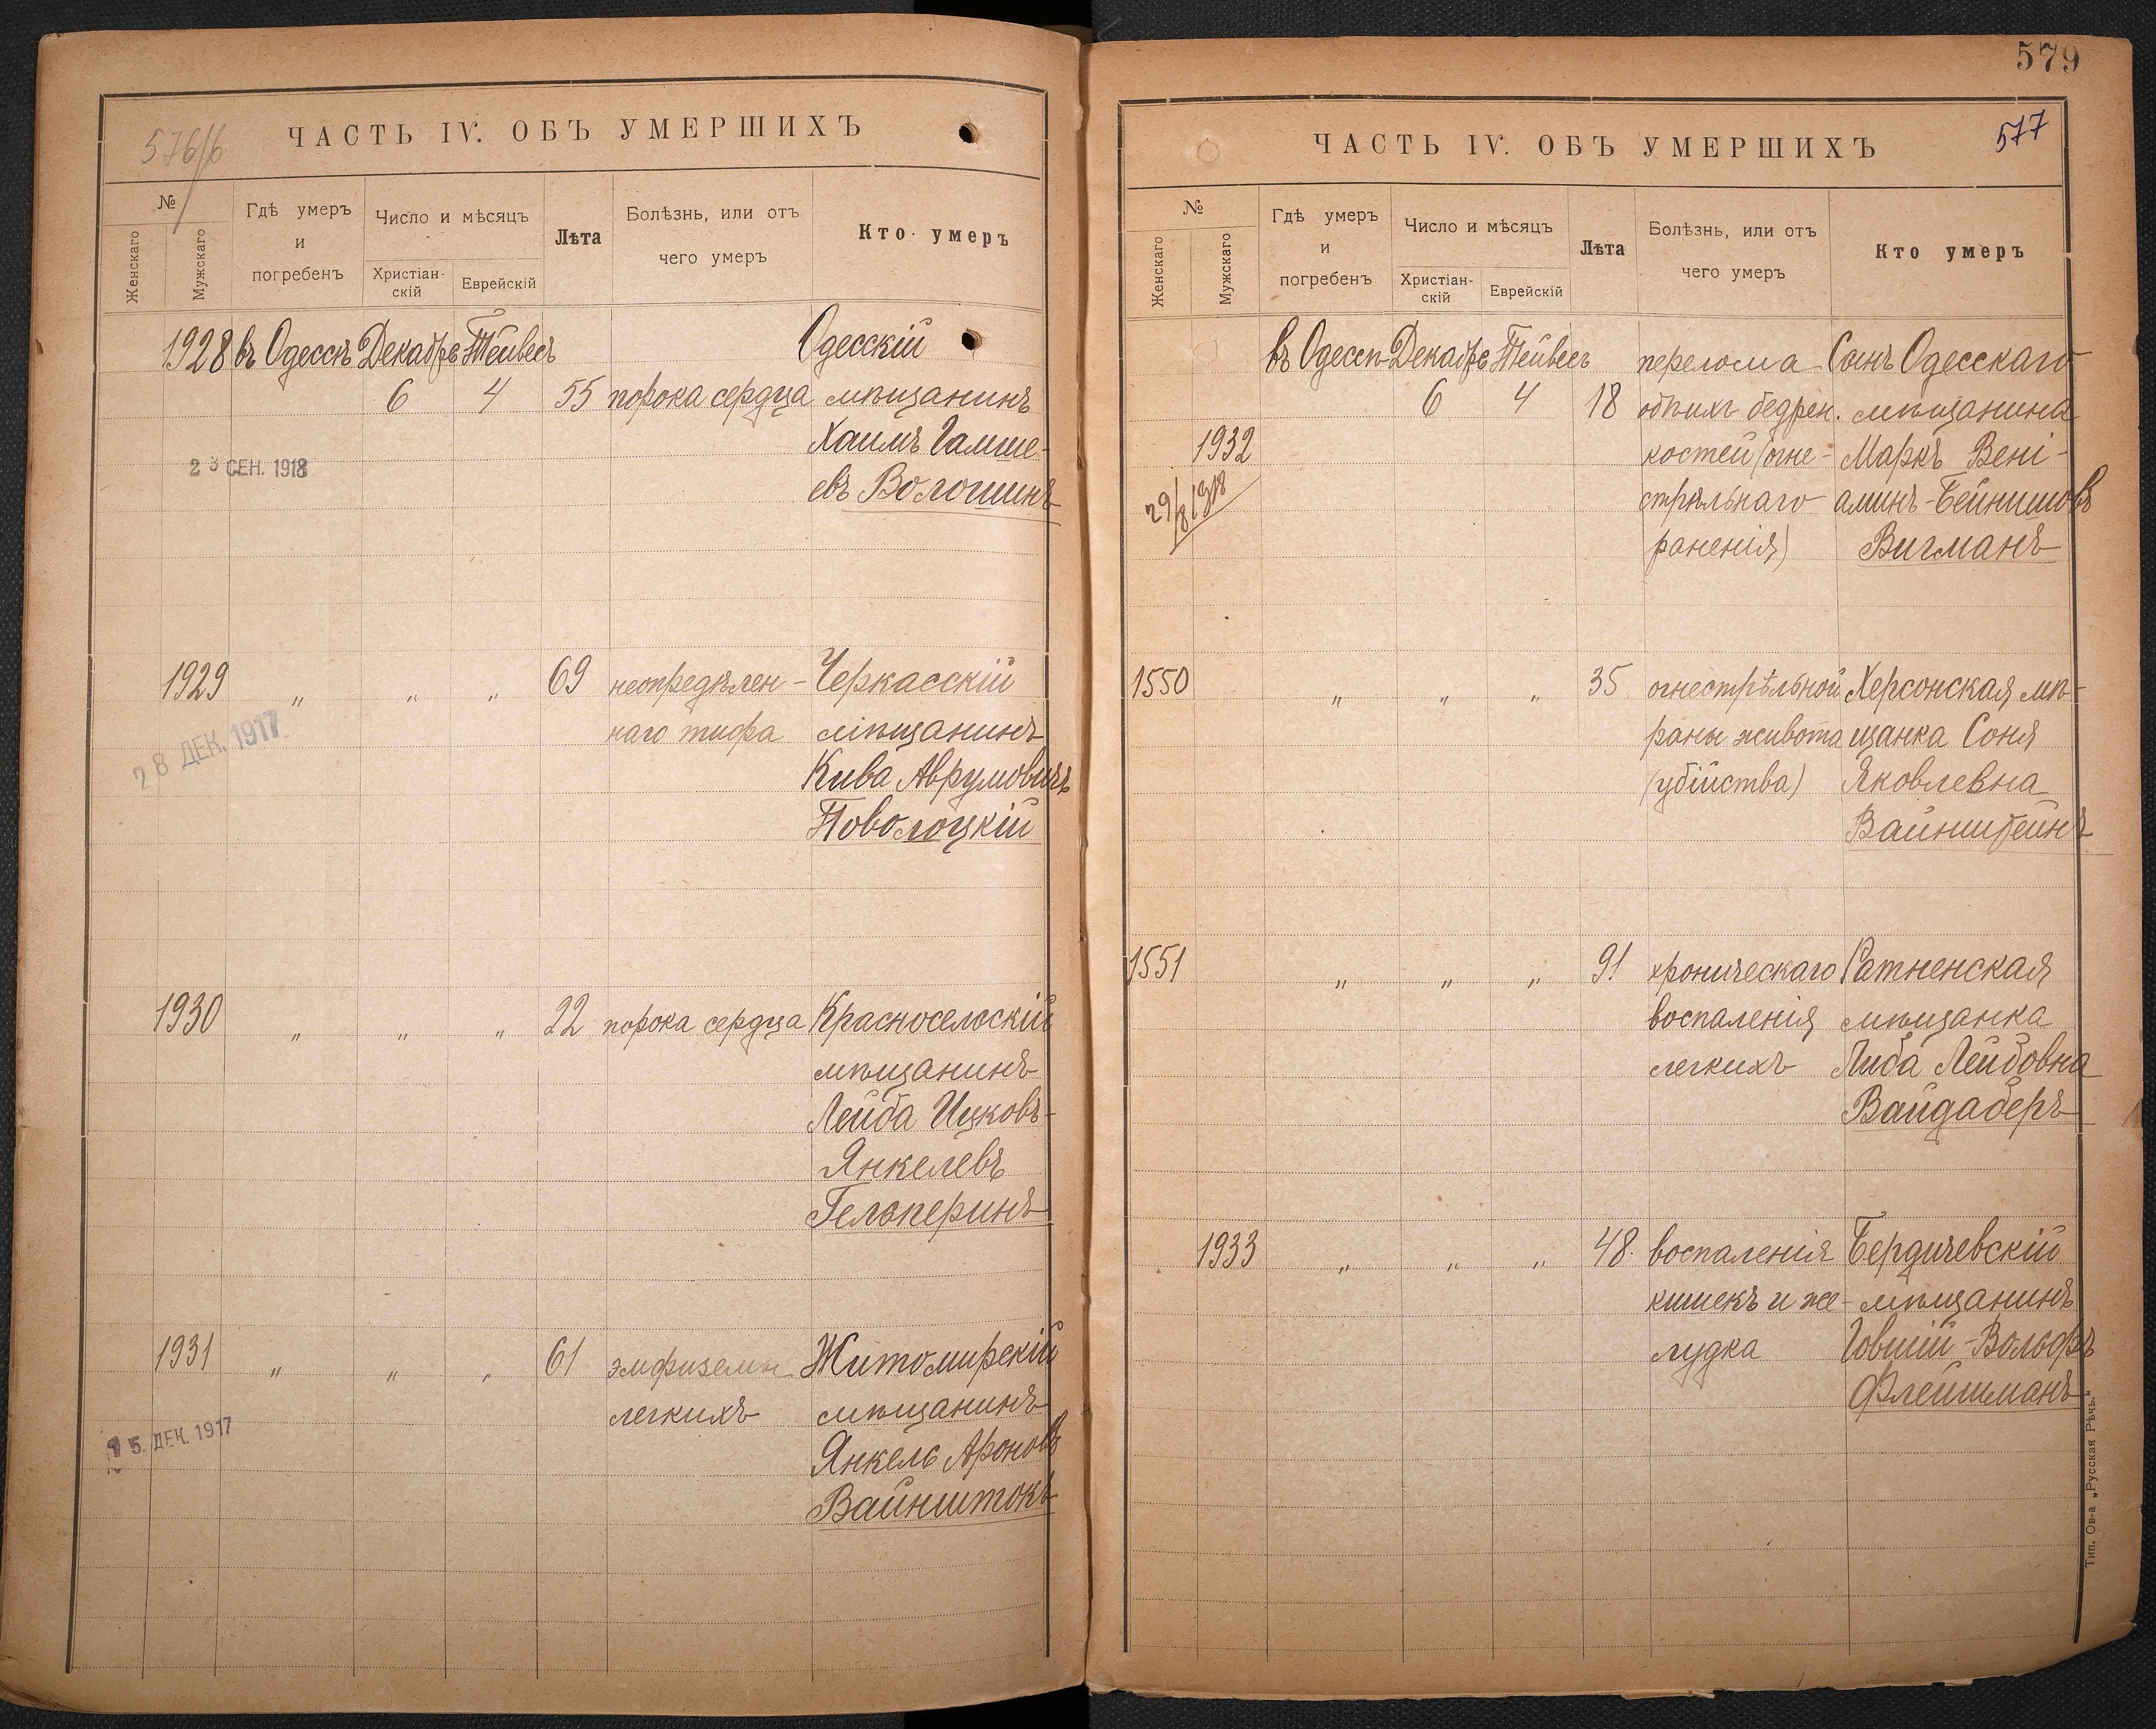 576/б
ЧАСТЬ IV. ОБЪ УМЕРШИХЪ
№
Женскаго
Мужскаго
Гдѣ умеръ
и
погребенъ
Число и мѣсяцъ
Христіан-
скій
Еврейскій
Лѣта
Болѣзнь, или отъ
чего умеръ
Кто умеръ
1928 въ Одессѣ Декабрь Тейвесъ Одесскій
6 4 55 порока сердца мѣщанинъ
Хаимъ Гамше-
евъ Вологшинъ
23 СЕН. 1918
1929 „ „ „ 69 неопредѣлен- Черкасскій
наго тифа мѣщанинъ
28 ДЕК. 1917
Кива Аврумовичъ
Поволоцкій
1930 „ „ „ 22 порока сердца Красносельскій
мѣщанинъ
Лейба Ицковъ-
Янкелевъ
Гельперинъ
1931 „ „ „ 61 эмфиземы Житомирскій
легкихъ мѣщанинъ
5. ДЕК. 1917
Янкель Ароновъ
Вайнштокъ
579
577
ЧАСТЬ IV. ОБЪ УМЕРШИХЪ
№
Женскаго
Мужскаго
Гдѣ умеръ
и
погребенъ
Число и мѣсяцъ
Христіан-
скій
Еврейскій
Лѣта
Болѣзнь, или отъ
чего умеръ
Кто умеръ
въ Одессѣ Декабрь Тейвесъ перелома Сынъ Одесскаго
6 4 18 обѣихъ бедрен. мѣщанина
1932 костей (огне- Маркъ Вені-
29/8 1918 стрѣльнаго аминъ-Бейнишовъ
раненія) Вигманъ
1550 „ „ „ 35 огнестрѣльной Херсонская мѣ-
раны живота щанка Соня
(убійства) Яковлевна
Вайнштейнъ
1551 „ „ „ 91 хроническаго Ратненская
воспаленія мѣщанка
легкихъ Либа Лейбовна
Вайдаберъ
1933 „ „ „ 48. воспаленія Бердичевскій
кишекъ и же- мѣщанинъ
лудка Говшій-Вольфъ
Флейшманъ
Тип. Ов-а „Русская Рѣчь."